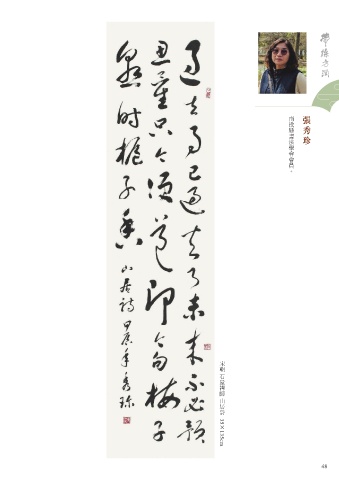 張秀珍
過去事已過去了未來不必預
思量只今便道即今句梅子
熟時梔子香 山居詩 甲辰年秀珍
石屋禪師 山居詩 35×135cm
48